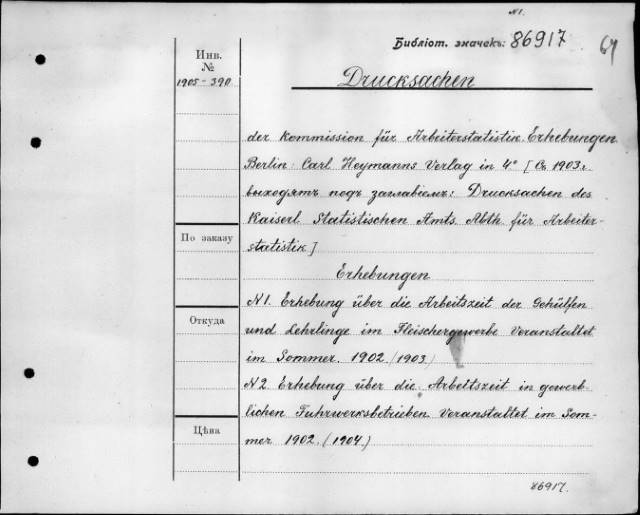 N1.
Библіот. значекъ: 86917 64
Инв.
№
1905-390
Drucksachen
der Kommission für Arbeiterstatistik. Erhebungen
Berlin: Carl Heymanns Verlag in 4° [Съ 1903 г.
выходятъ подъ заглавіемъ: Drucksachen des
Kaiserl. Statistischen Amts. Abth. für Arbeiter-
statistik]
По заказу
Erhebungen
N1. Erhebung über die Arbeitszeit der Gehülfen
Откуда
und Lehrlinge im Fleischergewerbe Veranstaltet
im Sommer. 1902 (1903)
N2 Erhebung über die Arbeitszeit in gewerb-
lichen Fuhrwerksbetrieben. Veranstaltet im Som-
Цѣна
mer 1902. (1904)
86917.